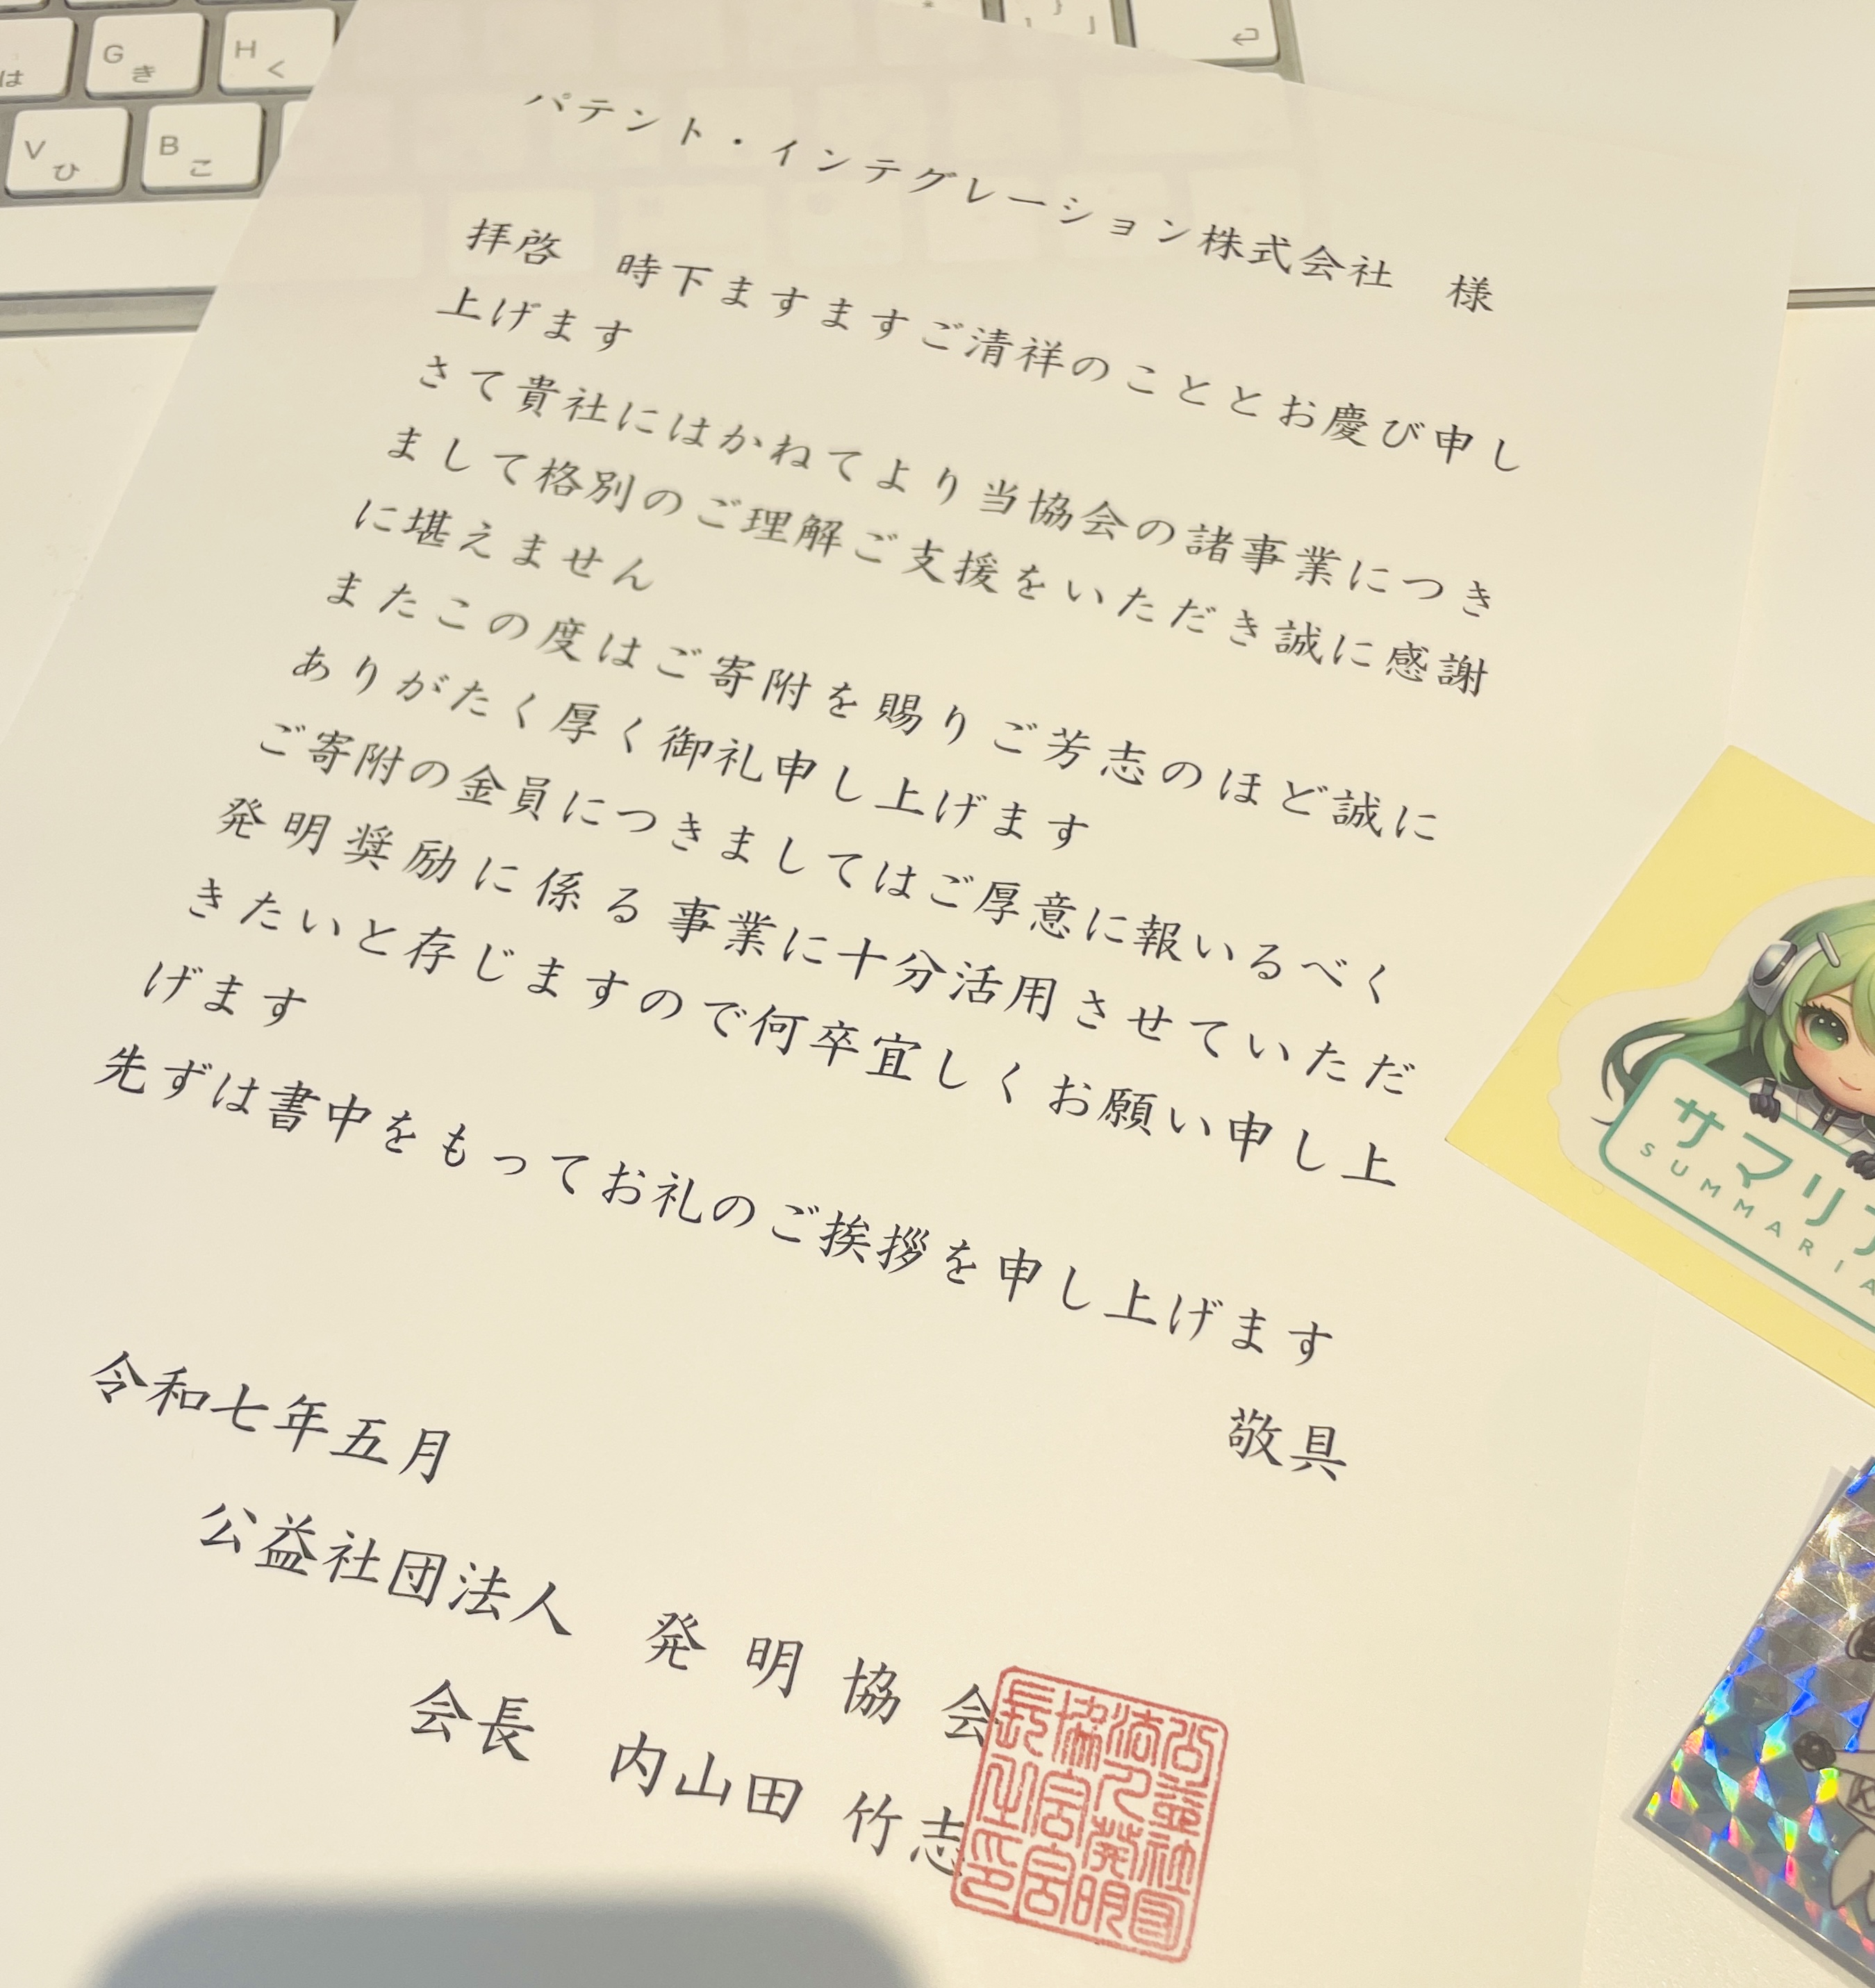 G
き
H
く
は
V
ひ
B
こ
パテント・インテグレーション株式会社　様
拝啓　時下ますますご清祥のこととお慶び申し
上げます
さて貴社にはかねてより当協会の諸事業につき
まして格別のご理解ご支援をいただき誠に感謝
に堪えません
またこの度はご寄附を賜りご芳志のほど誠に
ありがたく厚く御礼申し上げます
ご寄附の金員につきましてはご厚意に報いるべく
発明奨励に係る事業に十分活用させていただ
きたいと存じますので何卒宜しくお願い申し上
げます
先ずは書中をもってお礼のご挨拶を申し上げます
敬具
令和七年五月
公益社団法人　発明協会
会長　内山田　竹志
サマリア
SUMMARIA